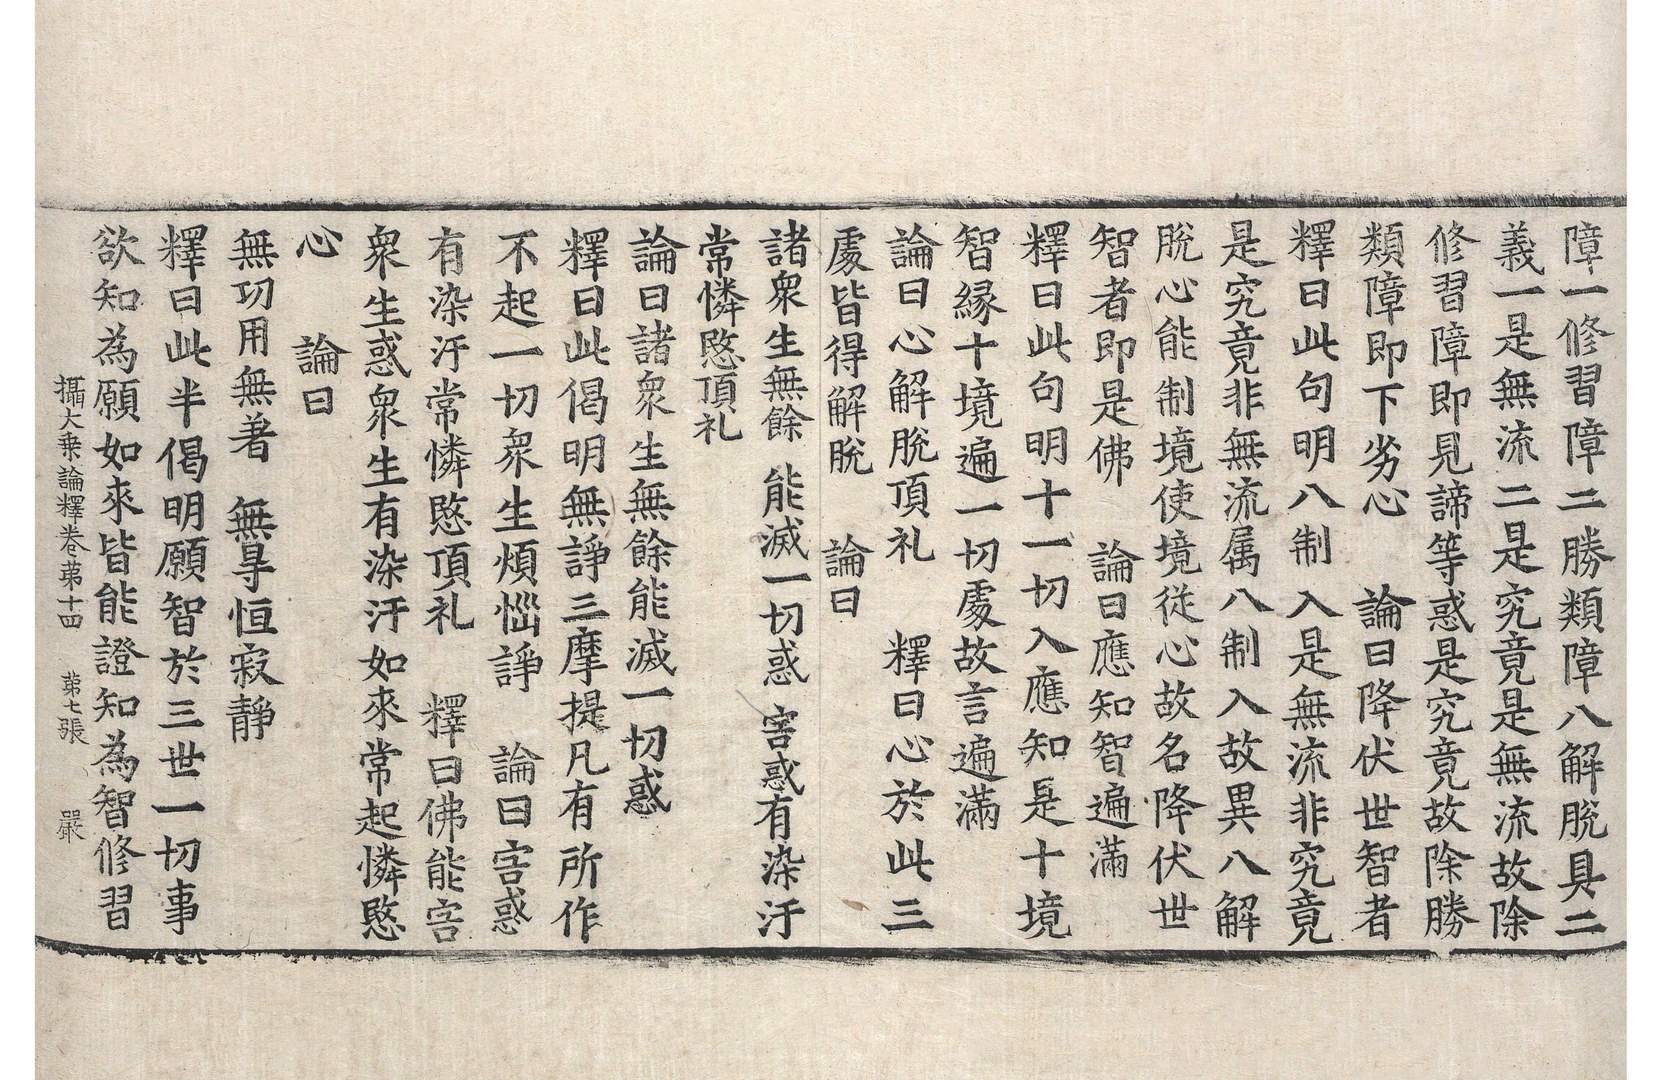 障一修習障二勝類障八解脫具二
義一是無流二是究竟是無流故除
修習障即見諦等惑是究竟故除勝
類障即下劣心　論曰降伏世智者
釋曰此句明八制入是無流非究竟
是究竟非無流属八制入故異八解
脫心能制境使境從心故名降伏世
智者即是佛　論曰應知智遍滿
釋曰此句明十一切入應知是十境
智緣十境遍一切處故言遍滿
論曰心解脫頂礼　釋曰心於此三
處皆得解脫　論曰
諸衆生無餘　能滅一切惑　害惑有染汙
常憐愍頂礼
論曰諸衆生無餘能滅一切惑
釋曰此偈明無諍三摩提凡有所作
不起一切衆生煩惱諍　論曰害惑
有染汙常憐愍頂礼　釋曰佛能害
衆生惑衆生有染汙如來常起憐愍
心　論曰
無功用無著　無㝵恒寂靜
釋曰此半偈明願智於三世一切事
欲知為願如來皆能證知為智修習
攝大乗論釋卷苐十四　苐七張　嚴